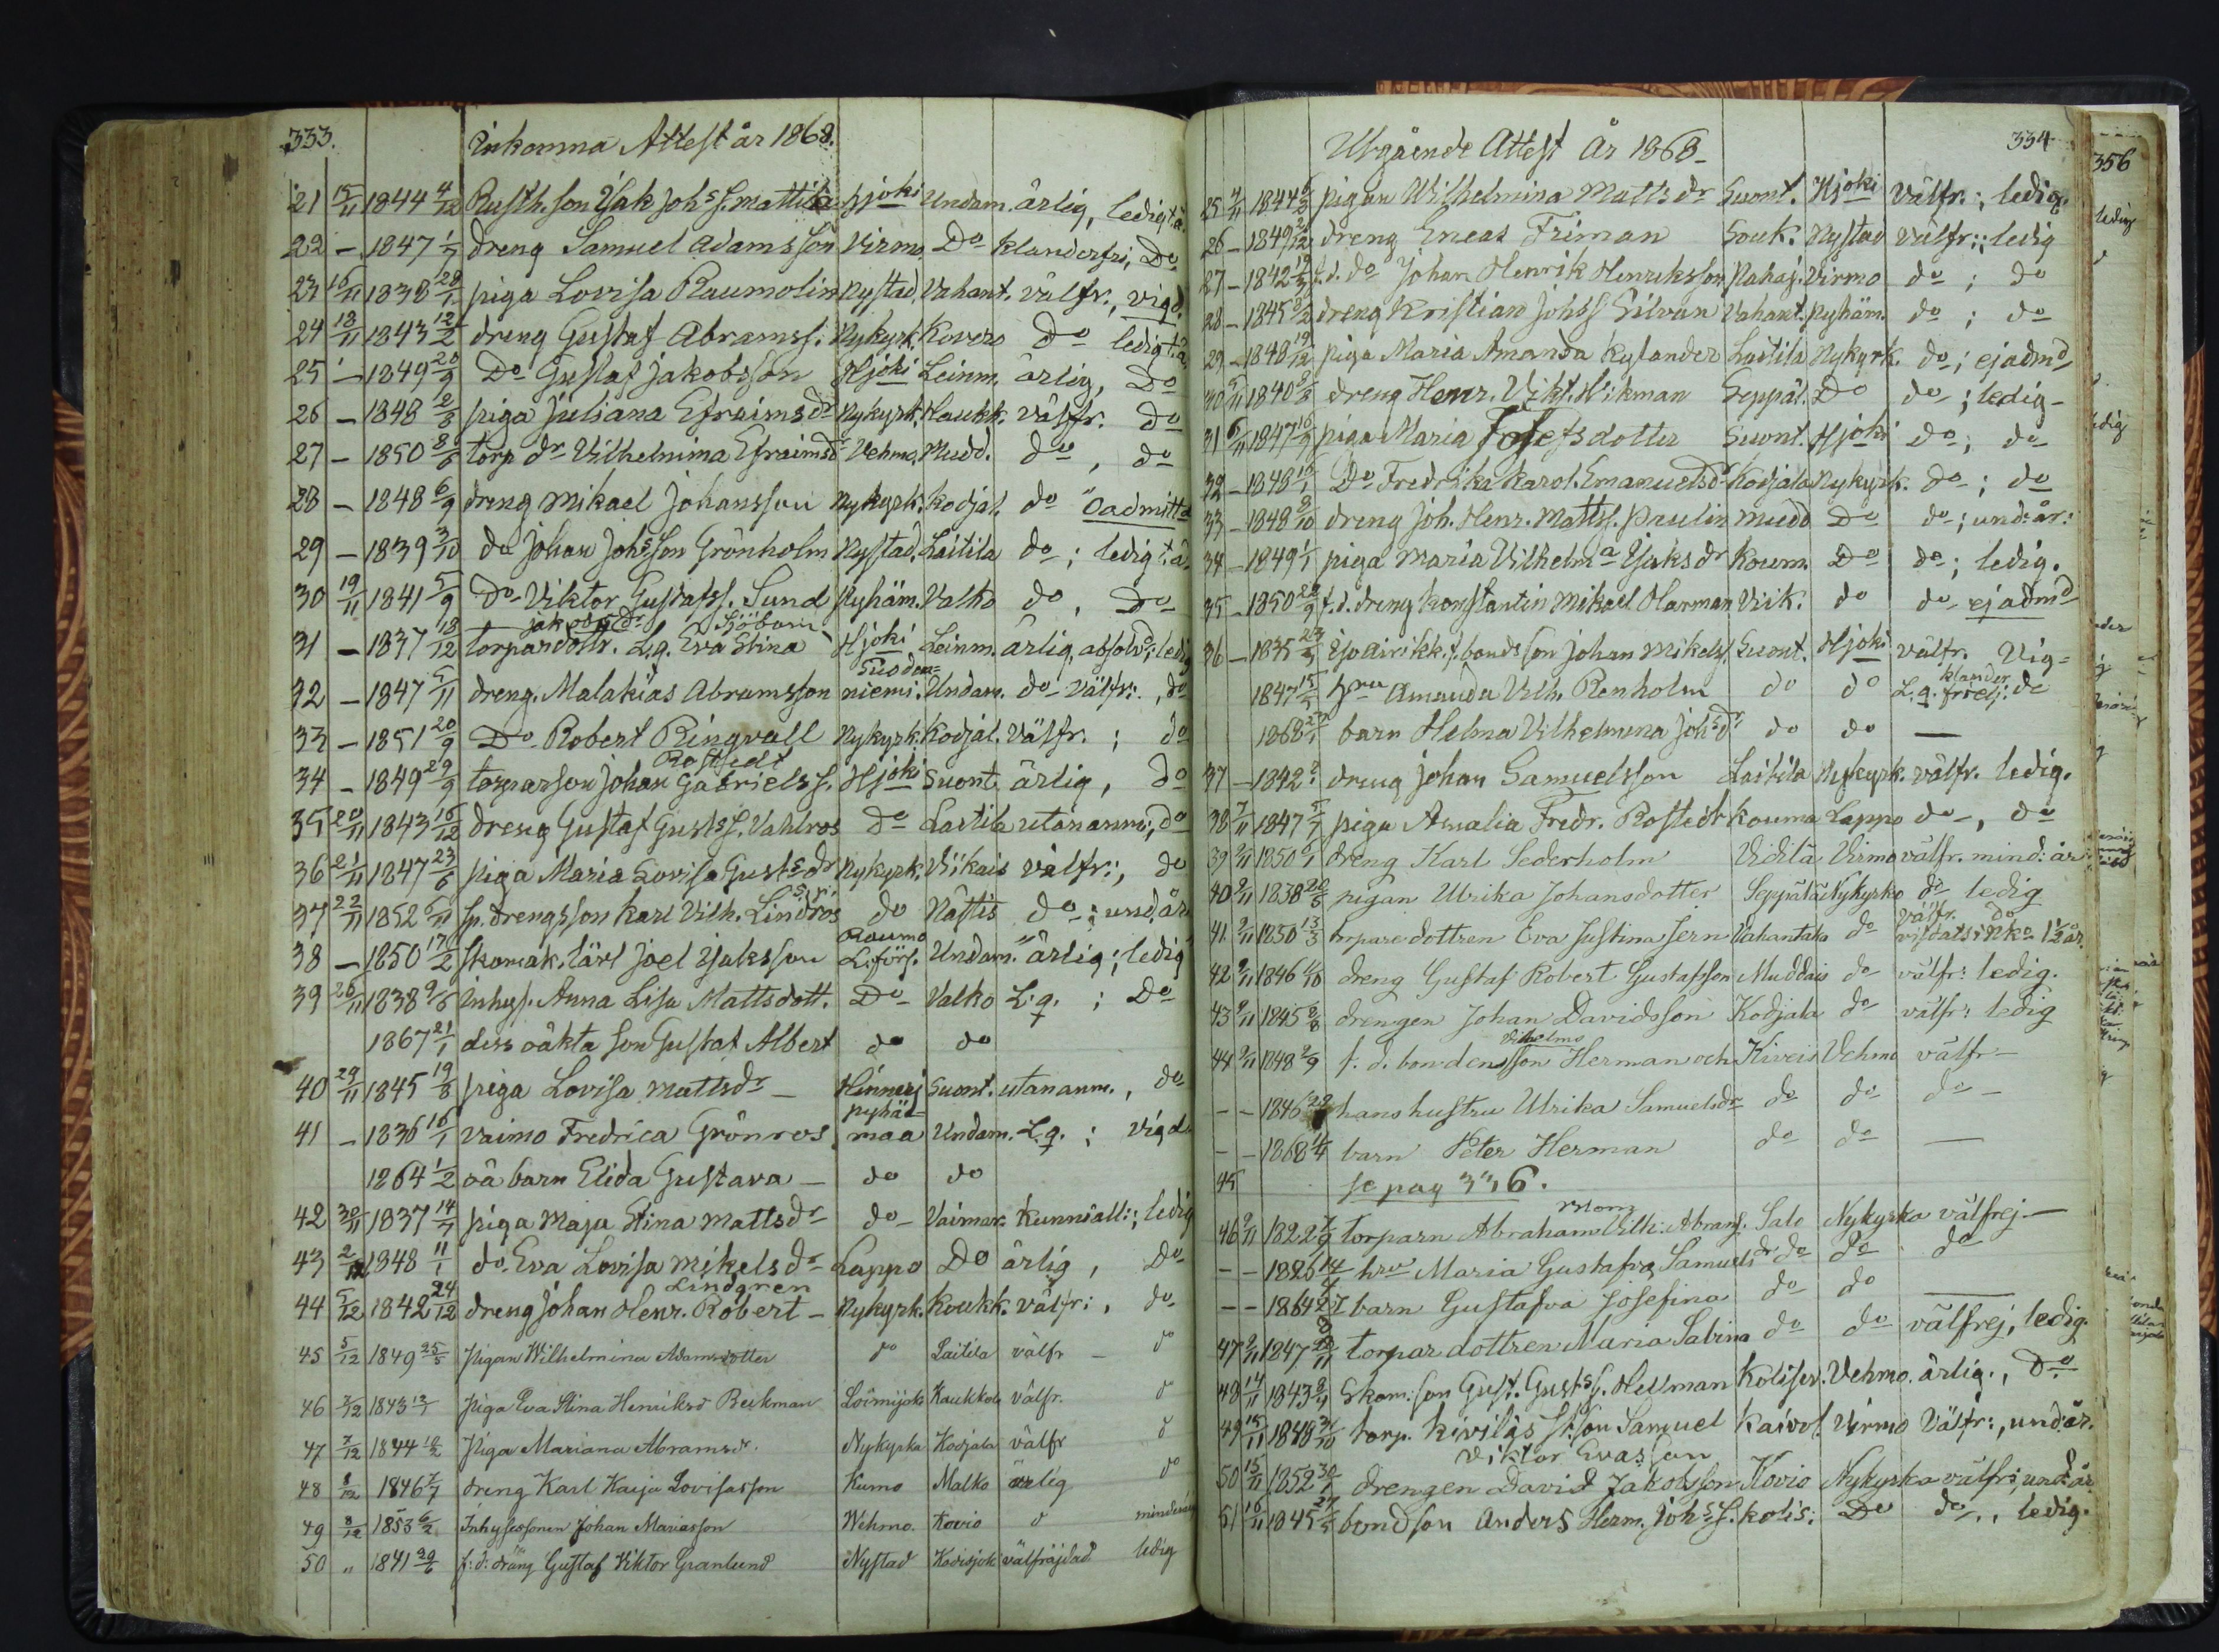 333. Inkomna Attest år 1868.
21 15/11 1844 4/12 Rusth. son Isak Johs S. Mattila Hjoki Undam. ärlig, ledig t. ä.
22 – 1847 1/7 dreng Samuel Adamsson Virmo Do klanderfri, Do
23 16/11 1838 28/1 piga Lovisa Raumolin Nystad Vahant. välfr., vigd.
24 18/11 1843 12/2 dreng Gustaf Abramss. Nykyrk. Kovero Do ledig t. ä.
25 – 1849 20/9 Do Gustaf Jakobsson Hjoki Leinm. ärlig, Do
26 – 1848 12/8 piga Juliana Efraimsdr Nykyrk. Haukk. välfr. do
27 – 1850 8/6 torp dr Vilhelmina Efraimsdr Vehmo. Mudd. do, do
28 – 1848 6/9 dreng Mikael Johansson Nykyrk. Kodjal. do Oadmittd
29 – 1839 3/10 do Johan Johsson Grönholm Nystad. Laitila do; ledig t. ä.
30 19/11 1841 5/9 Do Viktor Gustafss. Sund Pyhäm. Valko do, Do
Jakobsdr Sjöbom
31 – 1837 18/12 torpardottr. L.q. Eva Stina Hjoki Leinm. ärlig, absolvd; ledig
Suoden=
32 – 1847 5/11 dreng. Malakias Abramsson niemi. Undam. do välfr:, do
33 – 1851 20/9 Do Robert Ringvall Nykyrk. Kodjal. välfr.; do
Rostedt
34 – 1849 29/9 torparson Johan Gabrielss. Hjoki Suont. ärlig, do
35 20/11 1843 16/12 dreng Gustaf Gusts S. Vahlros do Laitila utan anm:, do
36 21/11 1847 23/6 piga Maria Lovisa Gusts dr Nykyrk. Viikais välfr:, do
37 22/11 1852 6/11 sp. drengsson Karl Vilh. Lindros do Nästis do; und. år
Raumo
38 – 1850 17/2 skomak. lärl Joel Isaksson L.förs. Undam. ärlig; ledig
39 26/11 1838 9/6 Inhys. Anna Lisa Mattsdott. Do Valko L.q.; Do
1867 21/1 dess oäkta son Gustaf Albert do do
40 29/11 1845 19/8 piga Lovisa Mattsdr – Hinnerj Suont. utan anm., do
Pyhä=
41 – 1836 16/1 vaimo Fredrica Grönroos maa Undam. L.q.; vigd
1864 1/2 oä barn Elida Gustava – do do
42 30/11 1837 14/7 piga Maja Stina Mattsdr do Vaimar. Kunniall:; ledig
43 2/12 1848 11/1 do Eva Lovisa Mikelsdr Lappo Do ärlig, Do
Lindgren
44 5/12 1842 24/12 dreng Johan Henr. Robert – Nykyrk. Koukk. välfr:, do
45 5/12 1849 25/5 Pigan Wilhelmina Adamsdotter do Laitila välfr – do
46 7/12 1843 13/7 Piga Eva Stina Henriksd Beckman Loimijoki Kaukkola välfr. do
47 7/12 1844 10/2 Piga Mariana Abramsdr. Nykyrka Kodjala välfr do
48 8/12 1846 7/7 dreng Karl Kaija Lovisasson Kumo Malko ärlig do
49 8/12 1853 6/2 Inhysessonen Johan Mariasson Wehmo. Kovio do minderårig
50 " 1841 29/6 f:d: dräng Gustaf Viktor Granlund Nystad Kodisjok välfräjdad ledig
Utgående Attest År 1868 – 334
25 4/11 1844 6/2 pigan Wilhelmina Mattsdr Suont. Hjoki välfr:; ledig.
26 – 1849 22/12 dreng Eneas Friman Souk. Nystad välfr:; ledig
27 – 1842 19/3 f.d. do Johan Henrik Henriksson Nahaj. Virmo do; do
28 – 1845 8/2 dreng Kristian Johss Silvan Vahant. Pyhäm. do; do
29 – 1848 19/12 piga Maria Amanda Kylander Laitila Nykyrk. do; ej admd
30 5/11 1840 8/3 dreng Henr. Vikt. Vikman Seppäl. Do do; ledig –
31 6/11 1847 16/9 piga Maria Josefsdotter Suont. Hjoki do; do
32 – 1848 16/1 Do Fredrika Karol. Emanuelsdr Kodjala Nykyrk. do; do
33 – 1848 8/10 dreng Joh. Henr. Mattss. Paulin Mudd Do do; und: år:
34 – 1849 1/1 piga Maria Vilhelma Isaksdr Koum. Do do; ledig.
35 – 1850 28/9 f.d. dreng Konstantin Mikael Harman Viik. do do ej admd
36 – 1835 23/3 f. bondsson Johan Mikelss. Suont. Hjoki välfr. Vig=
1847 15/5 hru Amanda Vilh. Renholm do do L.q. klander friej: do
1868 27/1 barn Helma Vilhelmina Johsdr do do —
37 – 1842 dreng Johan Samuelsson Laitila Nykyrk. välfr. ledig.
38 7/11 1847 5/7 piga Amalia Fredr. Rostedt Kouma Lappo do, do
39 9/11 1850 6/1 dreng Karl Sederholm Vidilä Virmo välfr. mind: år.
40 9/11 1838 20/5 pigan Ulrika Johansdotter Seppälä Nykyrko do ledig
41 9/11 1850 13/3 torpare dottren Eva Justina Jern Vahantaka do välfr. do vistats i Nko 1 1/2 år.
42 9/11 1846 4/10 dreng Gustaf Robert Gustafsson Muddais do välfr: ledig.
43 9/11 1845 8/8 drengen Johan Davidsson Kodjala do välfr: ledig
Vilhelms
44 9/11 1848 9/9 f. d. bondensson Herman och Kiveis Vehmo välfr –
– – 1846 28 hans hustru Ulrika Samuelsdr do do do –
– – 1868 1/4 barn Peter Herman do do —
45 se pag 336.
46 9/11 1822 7/9 torparn Abraham Vilh: Abrams. Salo Nykyrka välfrej –
– – 1826 14/4 hru Maria Gustafva Samuelsdr do do do
– – 1864 27/8 barn Gustafva Josefina do do —
47 9/11 1847 28/11 torpar dottren Maria Sabina do do välfrej, ledig.
48 14/11 1843 8/4 Skom. son Gust. Gusts S. Hellman Koliser. Vehmo. ärlig., Do
49 15/11 1848 31/10 torp. Kivilas St. son Samuel Kaivol. Virmo Välfr:, und. år.
Viktor Evasson
50 15/11 1852 30/7 drengen David Jakobsson Kovio Nykyrka välfr:, und. år
51 16/11 1845 27/5 bondson Anders Herm. Johs S. Kolis: Do do, ledig.
356
ledig